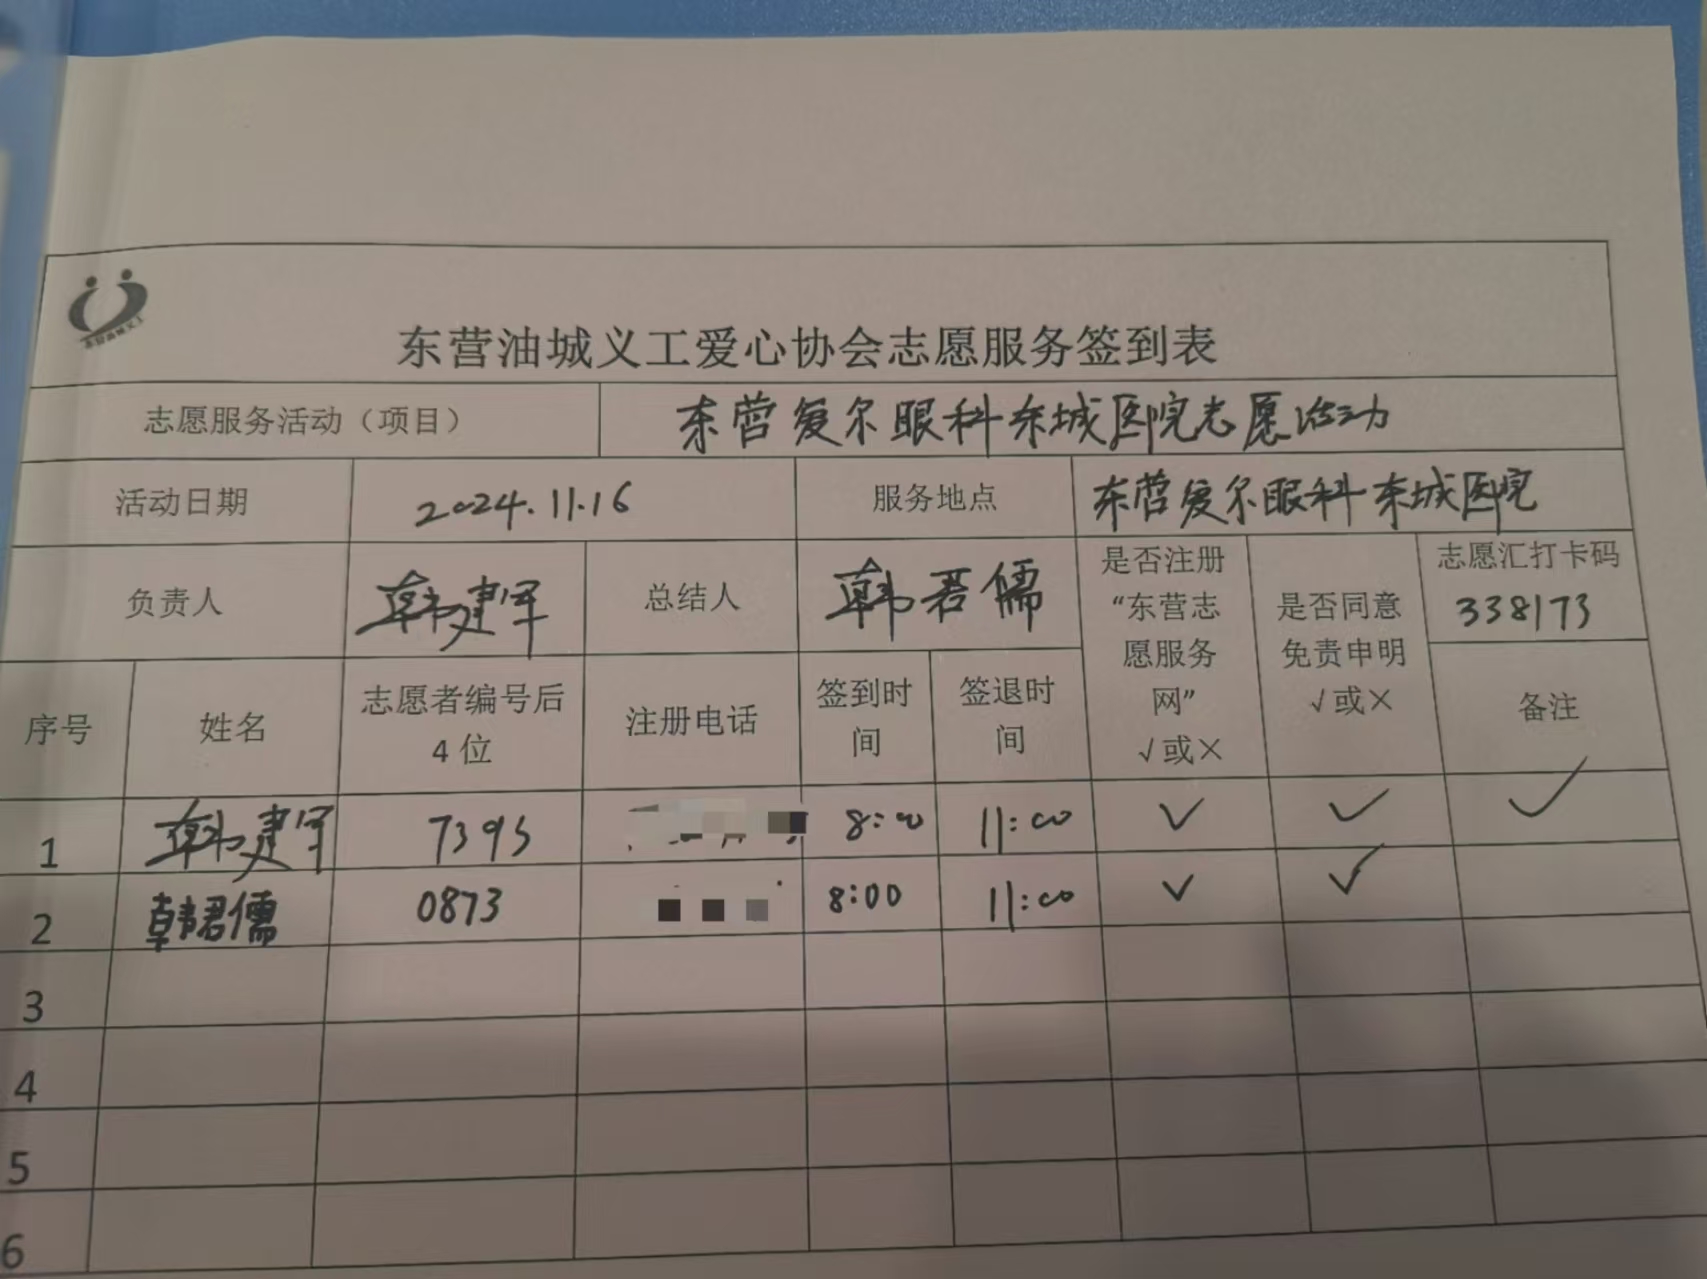 东营油城义工
东营油城义工爱心协会志愿服务签到表
志愿服务活动（项目） 东营爱尔眼科东城医院志愿活动
活动日期 2024.11.16 服务地点 东营爱尔眼科东城医院
负责人 韩建军 总结人 韩君儒
是否注册
“东营志
愿服务
网”
√或×
是否同意
免责申明
√或×
志愿汇打卡码
338173
备注
序号 姓名
志愿者编号后
4位
注册电话
签到时
间
签退时
间
1 韩建军 7395 8:00 11:00 ✓ ✓ ✓
2 韩君儒 0873 8:00 11:00 ✓ ✓
3
4
5
6